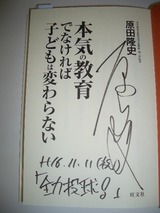 原田隆史
本気の教育
でなければ
子どもは変わらない
H16.11.11(木)
「全力投球!!」
旺文社